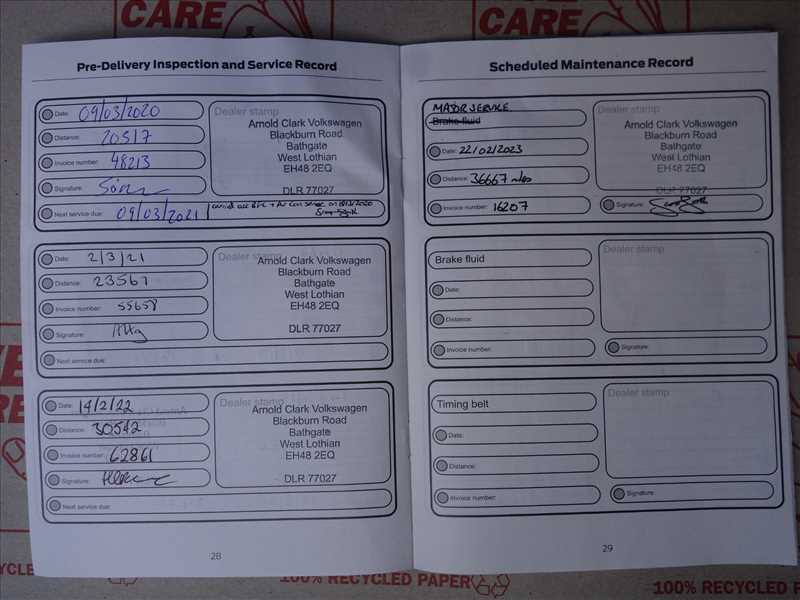 CARE
CARE
Pre-Delivery Inspection and Service Record
Date: 09/03/2020
Distance: 20517
Invoice number: 48213
Signature:
Next service due: 09/03/2021
Dealer stamp
Arnold Clark Volkswagen
Blackburn Road
Bathgate
West Lothian
EH48 2EQ
DLR 77027
Date: 2/3/21
Distance: 23567
Invoice number: 55658
Signature:
Next service due:
Dealer stamp
Arnold Clark Volkswagen
Blackburn Road
Bathgate
West Lothian
EH48 2EQ
DLR 77027
Date: 14/2/22
Distance: 30542
Invoice number: 62861
Signature:
Next service due:
Dealer stamp
Arnold Clark Volkswagen
Blackburn Road
Bathgate
West Lothian
EH48 2EQ
DLR 77027
28
Scheduled Maintenance Record
MAJOR SERVICE
Brake fluid
Date: 22/02/2023
Distance: 36667 miles
Invoice number: 16207
Dealer stamp
Arnold Clark Volkswagen
Blackburn Road
Bathgate
West Lothian
EH48 2EQ
DLR 77027
Signature:
Brake fluid
Date:
Distance:
Invoice number:
Dealer stamp
Signature:
Timing belt
Date:
Distance:
Invoice number:
Dealer stamp
Signature:
29
CARE
100% RECYCLED PAPER
100% RECYCLED PAPER